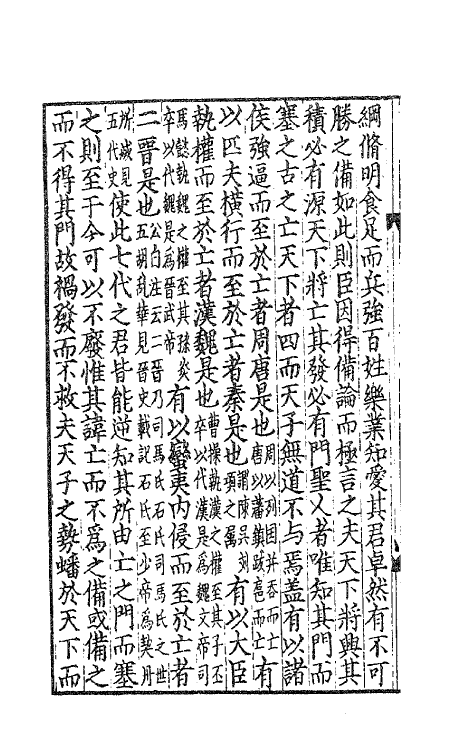 綱脩明食足而兵強百姓樂業知愛其君卓然有不可
勝之備如此則臣因得備論而極言之夫天下將興其
積必有源天下將亡其發必有門聖人者唯知其門而
塞之古之亡天下者四而天子無道不与焉蓋有以諸
侯強逼而至於亡者周唐是也周以列國并吞而亡唐以藩鎮跋扈而亡有
以匹夫橫行而至於亡者秦是也謂陳吳劉項之属有以大臣
執權而至於亡者漢魏是也曹操執漢之權至其子丕卒以代漢是爲魏文帝司
馬懿執魏之權至其孫炎卒以代魏是爲晉武帝有以蠻夷內侵而至於亡者
二晉是也公自注云二晉乃司馬氏石氏司馬氏之世五胡乱華見晉史載記石氏至少帝爲契丹
所滅見五代史使此七代之君皆能逆知其所由亡之門而塞
之則至于今可以不廢惟其諱亡而不爲之備或備之
而不得其門故禍發而不救夫天子之勢蟠於天下而